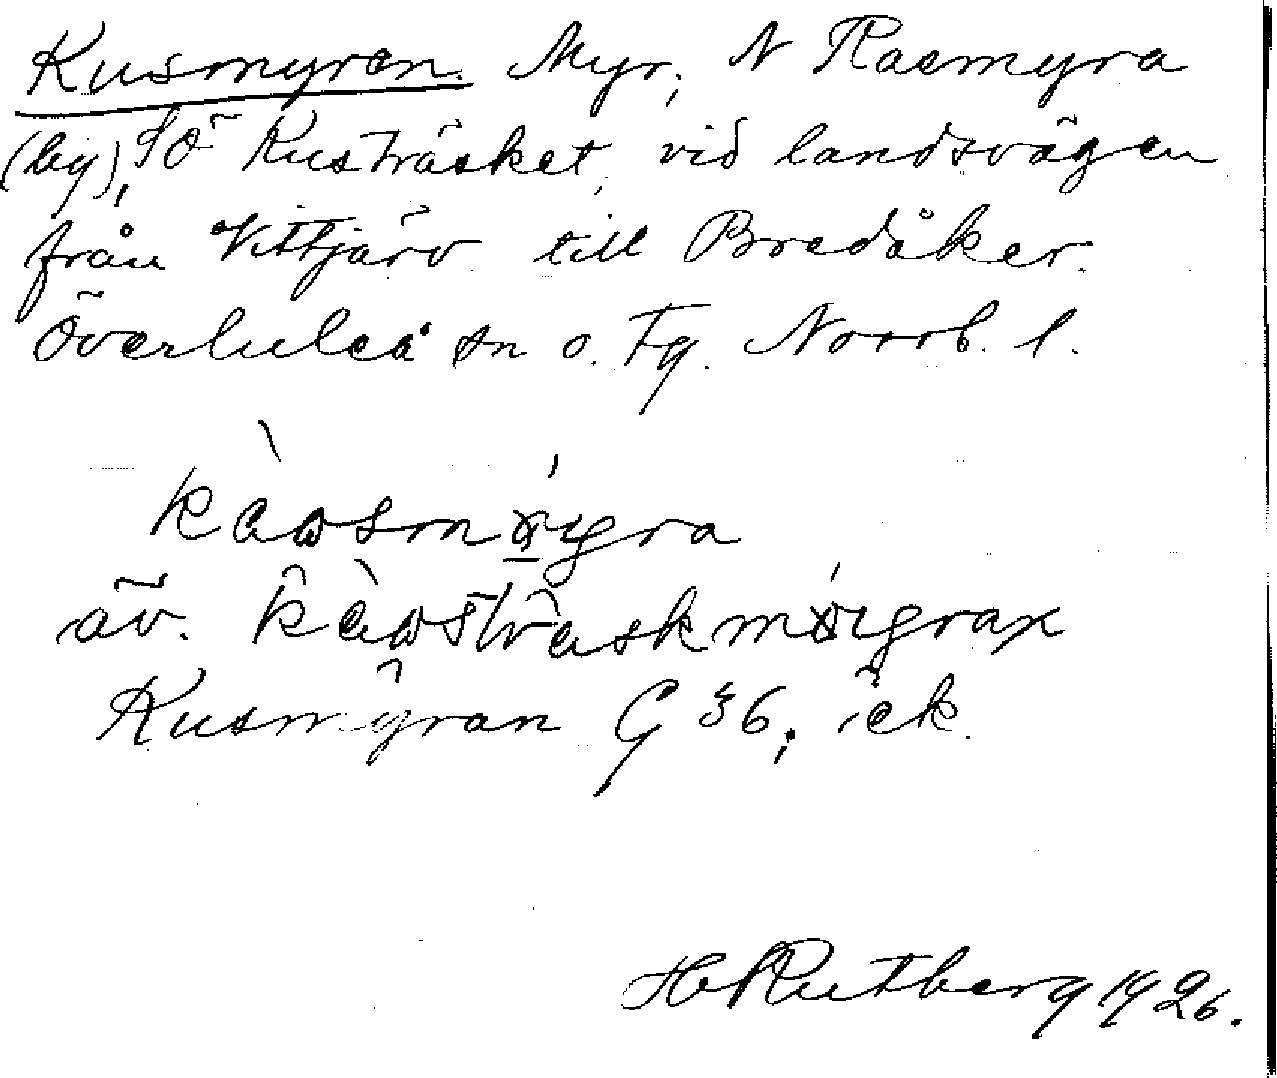 Kusmyren. Myr, N Racmyra
(by), SÖ Kusträsket, vid landsvägen
från Vittjärv till Bredåker.
Överluleå sn o. tg. Norrb. l.
av.
Kusmyran G 36, ick.
H Rutberg 1926.